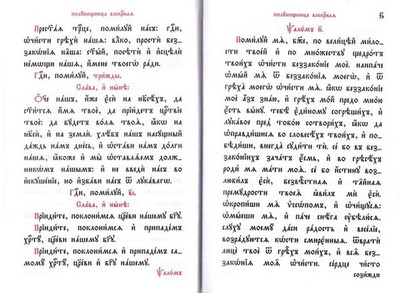 полꙋнощница воскрⷭ҇наѧ
Прест҃аѧ трⷪ҇це, поми́лꙋй на́съ: гдⷭ҇и,
ѡ҆чи́сти грѣхѝ на́шѧ: влⷣко, простѝ без-
зако́нїѧ на̑ша: ст҃ы́й, посѣтѝ и҆ и҆сцѣлѝ
не́мѡщи на́шѧ, и҆́мене твоегѡ̀ ра́ди.
Гдⷭ҇и, поми́лꙋй, три́жды.
Сла́ва, и҆ ны́нѣ:
Ѻ҆́ч҃е на́шъ, и҆́же є҆сѝ на нб҃сѣ́хъ, да
ст҃и́тсѧ и҆́мѧ твоѐ, да прїи́детъ црⷭ҇твїе
твоѐ: да бꙋ́детъ во́лѧ твоѧ̀, ꙗ҆́кѡ на
нб҃сѝ, и҆ на землѝ. хлѣ́бъ на́шъ насꙋ́щный
да́ждь на́мъ дне́сь, и҆ ѡ҆ста́ви на́мъ до́лги
на́шѧ, ꙗ҆́коже и҆ мы̀ ѡ҆ставлѧ́емъ долж-
никѡ́мъ на́шымъ: и҆ не введѝ на́съ во
и҆скꙋше́нїе, но и҆зба́ви на́съ ѿ лꙋка́вагѡ.
Гдⷭ҇и, поми́лꙋй, в҃і.
Сла́ва, и҆ ны́нѣ:
Прїиди́те, поклони́мсѧ цр҃е́ви на́шемꙋ бг҃ꙋ.
Прїиди́те, поклони́мсѧ и҆ припаде́мъ
хрⷭ҇тꙋ̀, цр҃е́ви на́шемꙋ бг҃ꙋ.
Прїиди́те, поклони́мсѧ и҆ припаде́мъ са-
момꙋ̀ хрⷭ҇тꙋ̀, цр҃е́ви и҆ бг҃ꙋ на́шемꙋ.
Ѱало́мъ
полꙋнощница воскрⷭ҇наѧ
Ѱало́мъ н҃.
Поми́лꙋй мѧ̀, бж҃е, по вели́цѣй ми́ло-
сти твое́й, и҆ по мно́жествꙋ щедро́тъ
твои́хъ ѡ҆чи́сти беззако́нїе моѐ. наипа́че
ѡ҆мы́й мѧ̀ ѿ беззако́нїѧ моегѡ̀, и҆ ѿ
грѣха̀ моегѡ̀ ѡ҆чи́сти мѧ̀. ꙗ҆́кѡ беззако́нїе
моѐ а҆́зъ зна́ю, и҆ грѣ́хъ мо́й предо мно́ю
є҆́сть вы́нꙋ. тебѣ̀ є҆ди́номꙋ согрѣши́хъ, и҆
лꙋка́вое пред̾ тобо́ю сотвори́хъ, ꙗ҆́кѡ да
ѡ҆правди́шисѧ во словесѣ́хъ твои́хъ, и҆ по-
бѣди́ши, внегда̀ сꙋди́ти тѝ. се́ бо, въ без-
зако́нїихъ зача́тъ є҆́смь, и҆ во грѣсѣ́хъ
родѝ мѧ̀ ма́ти моѧ̀. се́ бо и҆́стинꙋ воз-
люби́лъ є҆сѝ, безвѣ̑стнаѧ и҆ та̑йнаѧ
премꙋ́дрости твоеѧ̀ ꙗ҆ви́лъ мѝ є҆сѝ. ѡ҆-
кропи́ши мѧ̀ ѵ҆ссѡ́помъ, и҆ ѡ҆чи́щꙋсѧ:
ѡ҆мы́еши мѧ̀, и҆ па́че снѣ́га ᲂу҆бѣлю́сѧ.
слꙋ́хꙋ моемꙋ̀ да́си ра́дость и҆ весе́лїе,
возра́дꙋютсѧ кѡ́сти смирє́нныѧ. ѿвратѝ
лицѐ твоѐ ѿ грѣ̑хъ мои́хъ, и҆ всѧ̑ без-
закѡ́нїѧ моѧ̑ ѡ҆чи́сти. се́рдце чи́сто
сози́жди